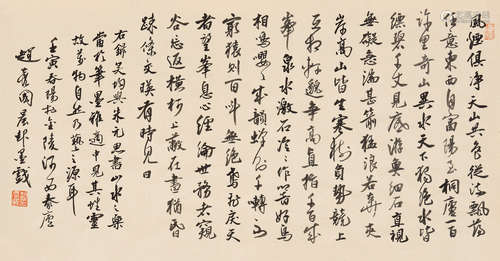 風煙俱淨天山共色從流飄蕩
任意東西自富陽至桐廬一百
許里奇山異水天下獨絕水皆
縹碧千丈見底游魚細石直視
無礙急湍甚箭猛浪若奔夾
岸高山皆生寒樹負勢競上
互相軒邈爭高直指千百成
峯泉水激石泠々作響好鳥
相鳴嚶々成韻蟬則千轉不
窮猿則百叫無絕鳶飛戾天
者望峯息心經綸世務者窺
谷忘返橫柯上蔽在晝猶昏
疎條交映有時見日
右錄吳均與朱元思書山水之樂
當於筆墨雅適中見其性靈
故萬物自然乃藝之源耳
壬寅春揚於金陵河西秦廬
趙國晨邨墨戲